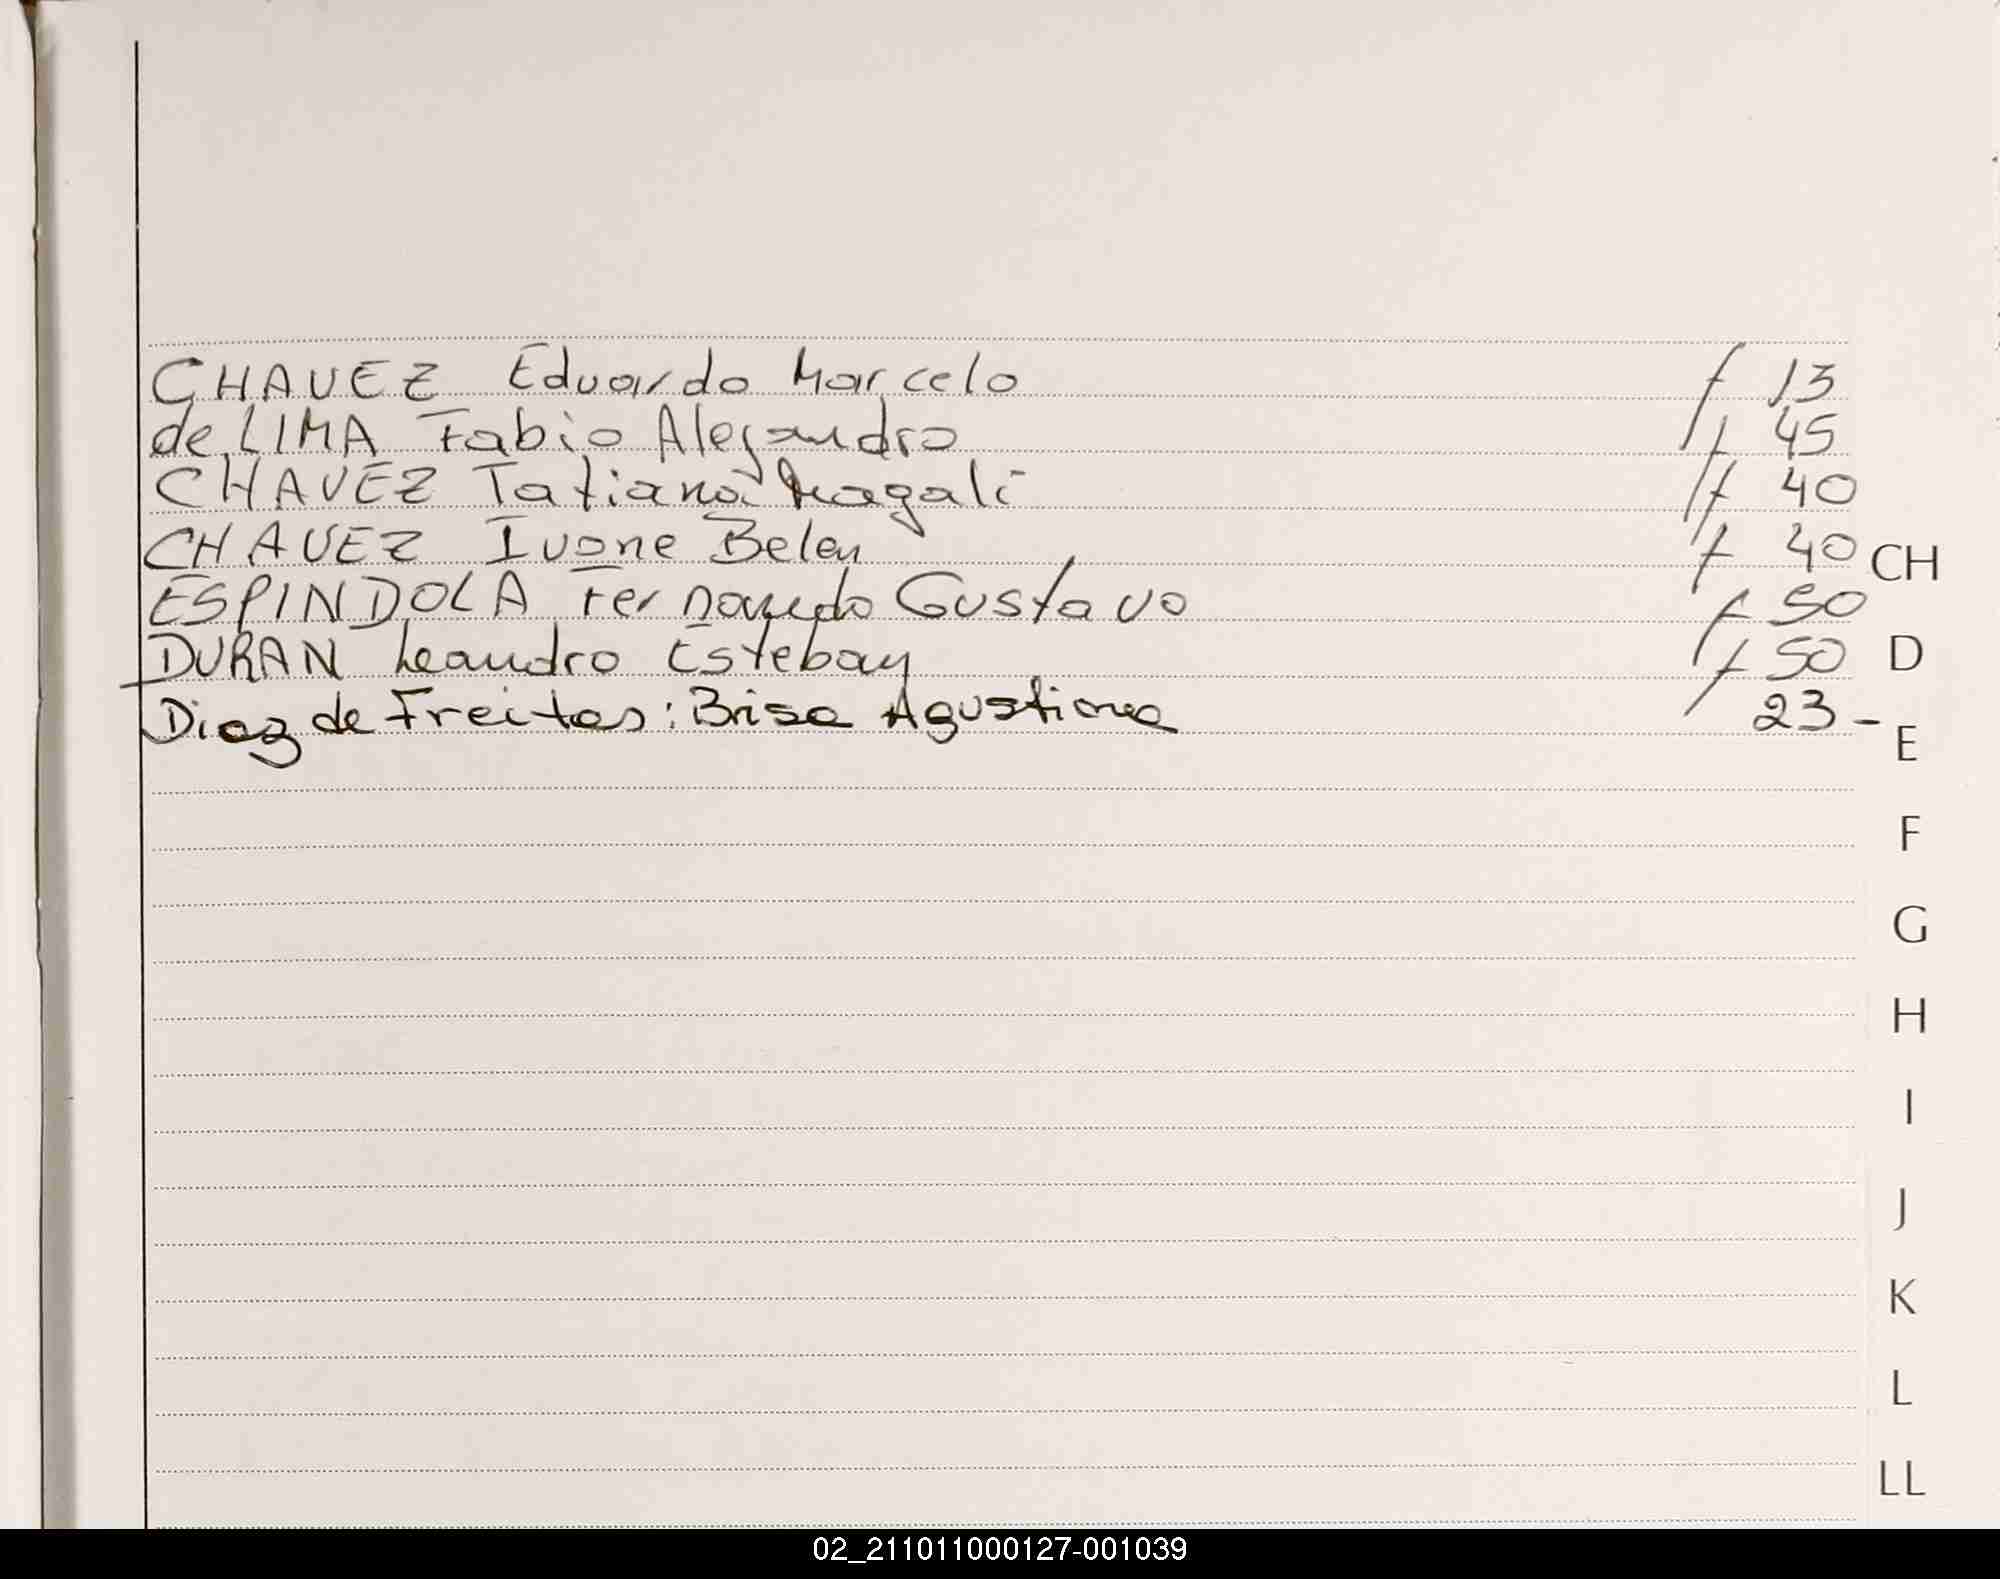 CHAVEZ Eduardo Marcelo f 13
de LIMA Fabio Alejandro f 45
CHAVEZ Tatiana Magali f 40
CHAVEZ Ivone Belen f 40
CH
ESPINDOLA Fernando Gustavo f 50
DURAN Leandro Esteban f 50
D
Diaz de Freitas: Brisa Agustina 23-
E
F
G
H
I
J
K
L
LL
02_211011000127-001039